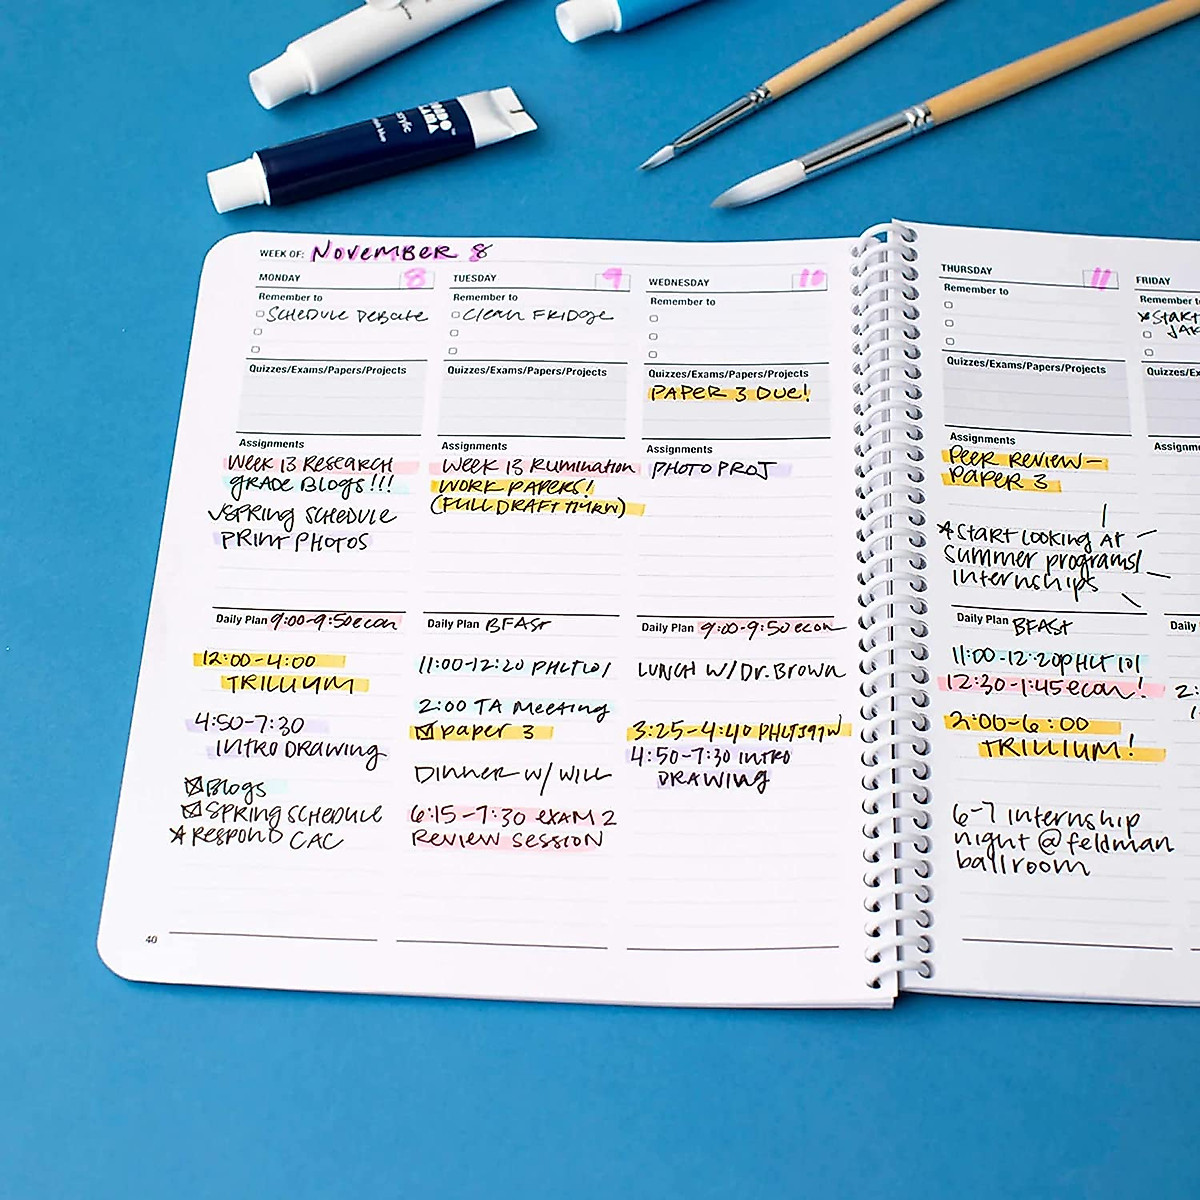 WEEK OF: NOVEMBER 8
MONDAY 8
Remember to
SCHEDULE DEBATE
Quizzes/Exams/Papers/Projects
Assignments
WEEK 13 RESEARCH
GRADE BLOGS!!!
SPRING SCHEDULE
PRINT PHOTOS
Daily Plan 9:00-9:50 econ
12:00-4:00
TRILLIUM
4:50-7:30
INTRO DRAWING
Blogs
SPRING SCHEDULE
RESPOND CAC
40
TUESDAY 9
Remember to
Clean FRIDGE
Quizzes/Exams/Papers/Projects
Assignments
WEEK 13 Rumination
WORK PAPERS!
(FULL DRAFT
Daily Plan BFAST
11:00-12:20 PHLT101
2:00 TA Meeting
paper 3
DINNER W/ WILL
6:15-7:30 EXAM 2
REVIEW SESSION
WEDNESDAY 10
Remember to
Quizzes/Exams/Papers/Projects
PAPER 3 DUE!
Assignments
PHOTO PROJ
Daily Plan 9:00-9:50 econ
LUNCH W/ Dr. Brown
3:25-4:40
4:50-7:30 INTRO
DRAWING
THURSDAY 11
Remember to
Quizzes/Exams/Papers/Projects
Assignments
PEER REVIEW-
PAPER 3
START LOOKING AT
Summer programs/
internships
Daily Plan BFAST
11:00-12:20 PHLT 101
12:30-1:45 econ!
2:00-6:00
TRILLIUM!
6-7 internship
night @ feldman
ballroom
FRIDAY
Remember to
START
Quizzes/Ex
Assignmen
Daily
2: